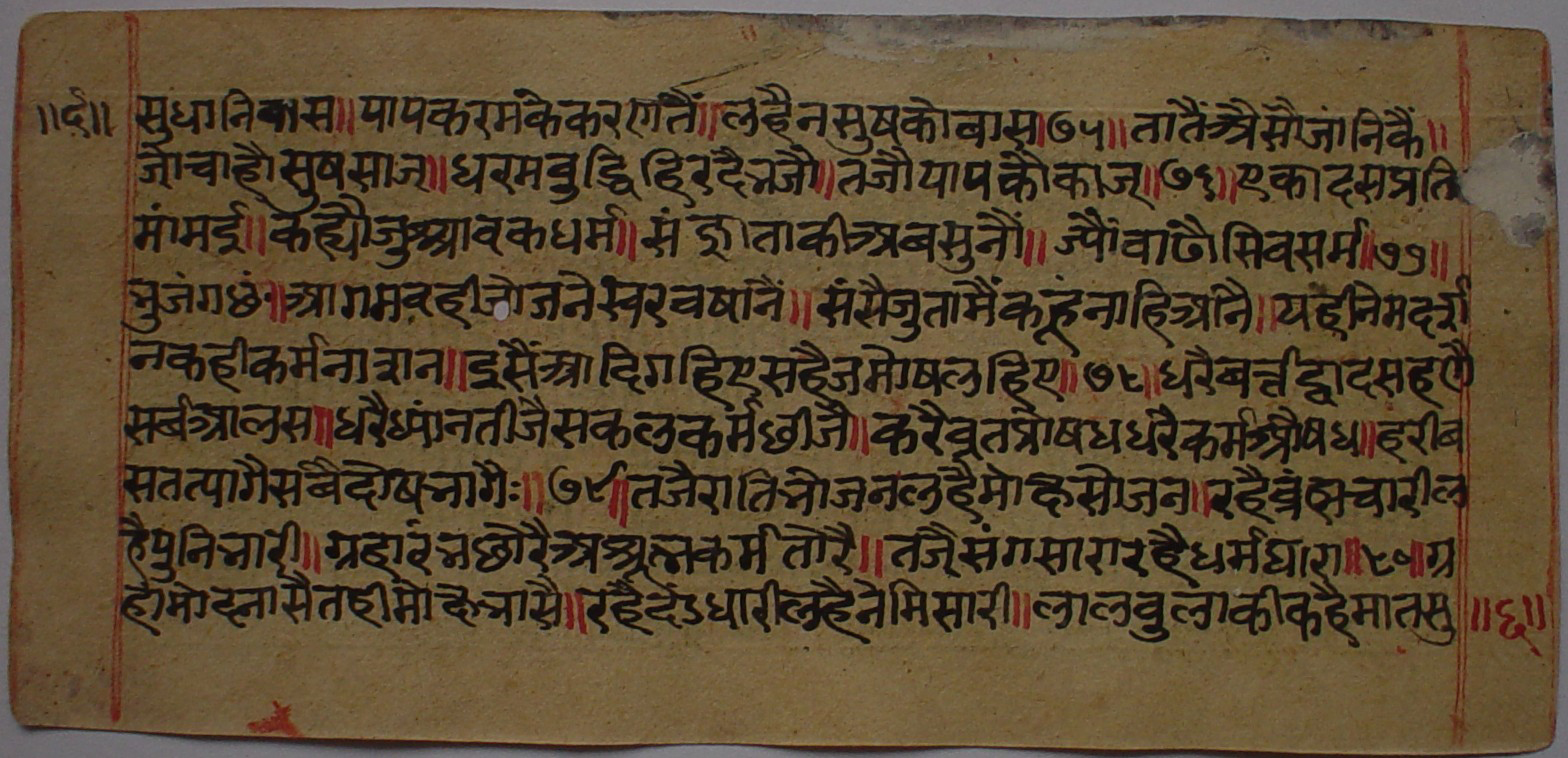 ॥६॥ सुधानिवास॥ पापकरमके करणतैं॥ लहैनसुषकोबास॥७५॥ तातैंऔसौजांनिकैं॥
जोचाहौसुषसाज॥ धरमवुद्धिहिरदैभजौ॥ तजौपापकौकाज॥७६॥ एकादसप्रति
मांमई॥ कह्यौजुश्रावकधर्म॥ संज्ञाताकीअबसुनौं॥ ज्यौंवाढैसिवसर्म॥७७॥
भुजंगछं॥ आगमवहीजोजनेस्वरवषांनैं॥ संसैजुतामैंकहूंनाहिआंनै॥ यहीनेमदर्श
नकहीकर्मनाशन॥ इसैंआदिगहिएसहैजमोषलहिए॥७८॥ धरैबर्त्तद्वादसहणै
सर्बआलस॥ धरैध्यांनतीजैसकलकर्मछीजै॥ करैवृतप्रौषधधरैकर्मऔषध॥ हरीब
सतत्यागैसबैदोषभागैः॥७९॥ तजैरातिभोजनलहैमोक्षसोजन॥ रहैब्रंह्मचारील
हैपुनिभारी॥ ग्रहारंभछौरैअशुभकर्मतोरै॥ तजैसंगसारारहैधर्मधारा॥८०॥ ग्र
होमोहनासैतहीमोक्षभासै॥ रहैदंडधारीलहैनैमिसारी॥ लालवुलाकीकहैमातसु ॥६॥